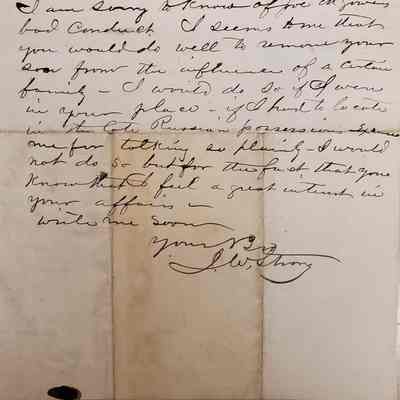 I am sorry to know of Joe
bad conduct. I seems to me that
you would do well to remove your
son from the influence of a certain
family - I would do so if I were
in your place - if I had to locate
in the late Russian possessions excuse
me for talking so plainly - I would
not do so but for the fact that you
Know that I feel a great interest in
your affairs -
write me soon
Your Bro
J. W. Strong